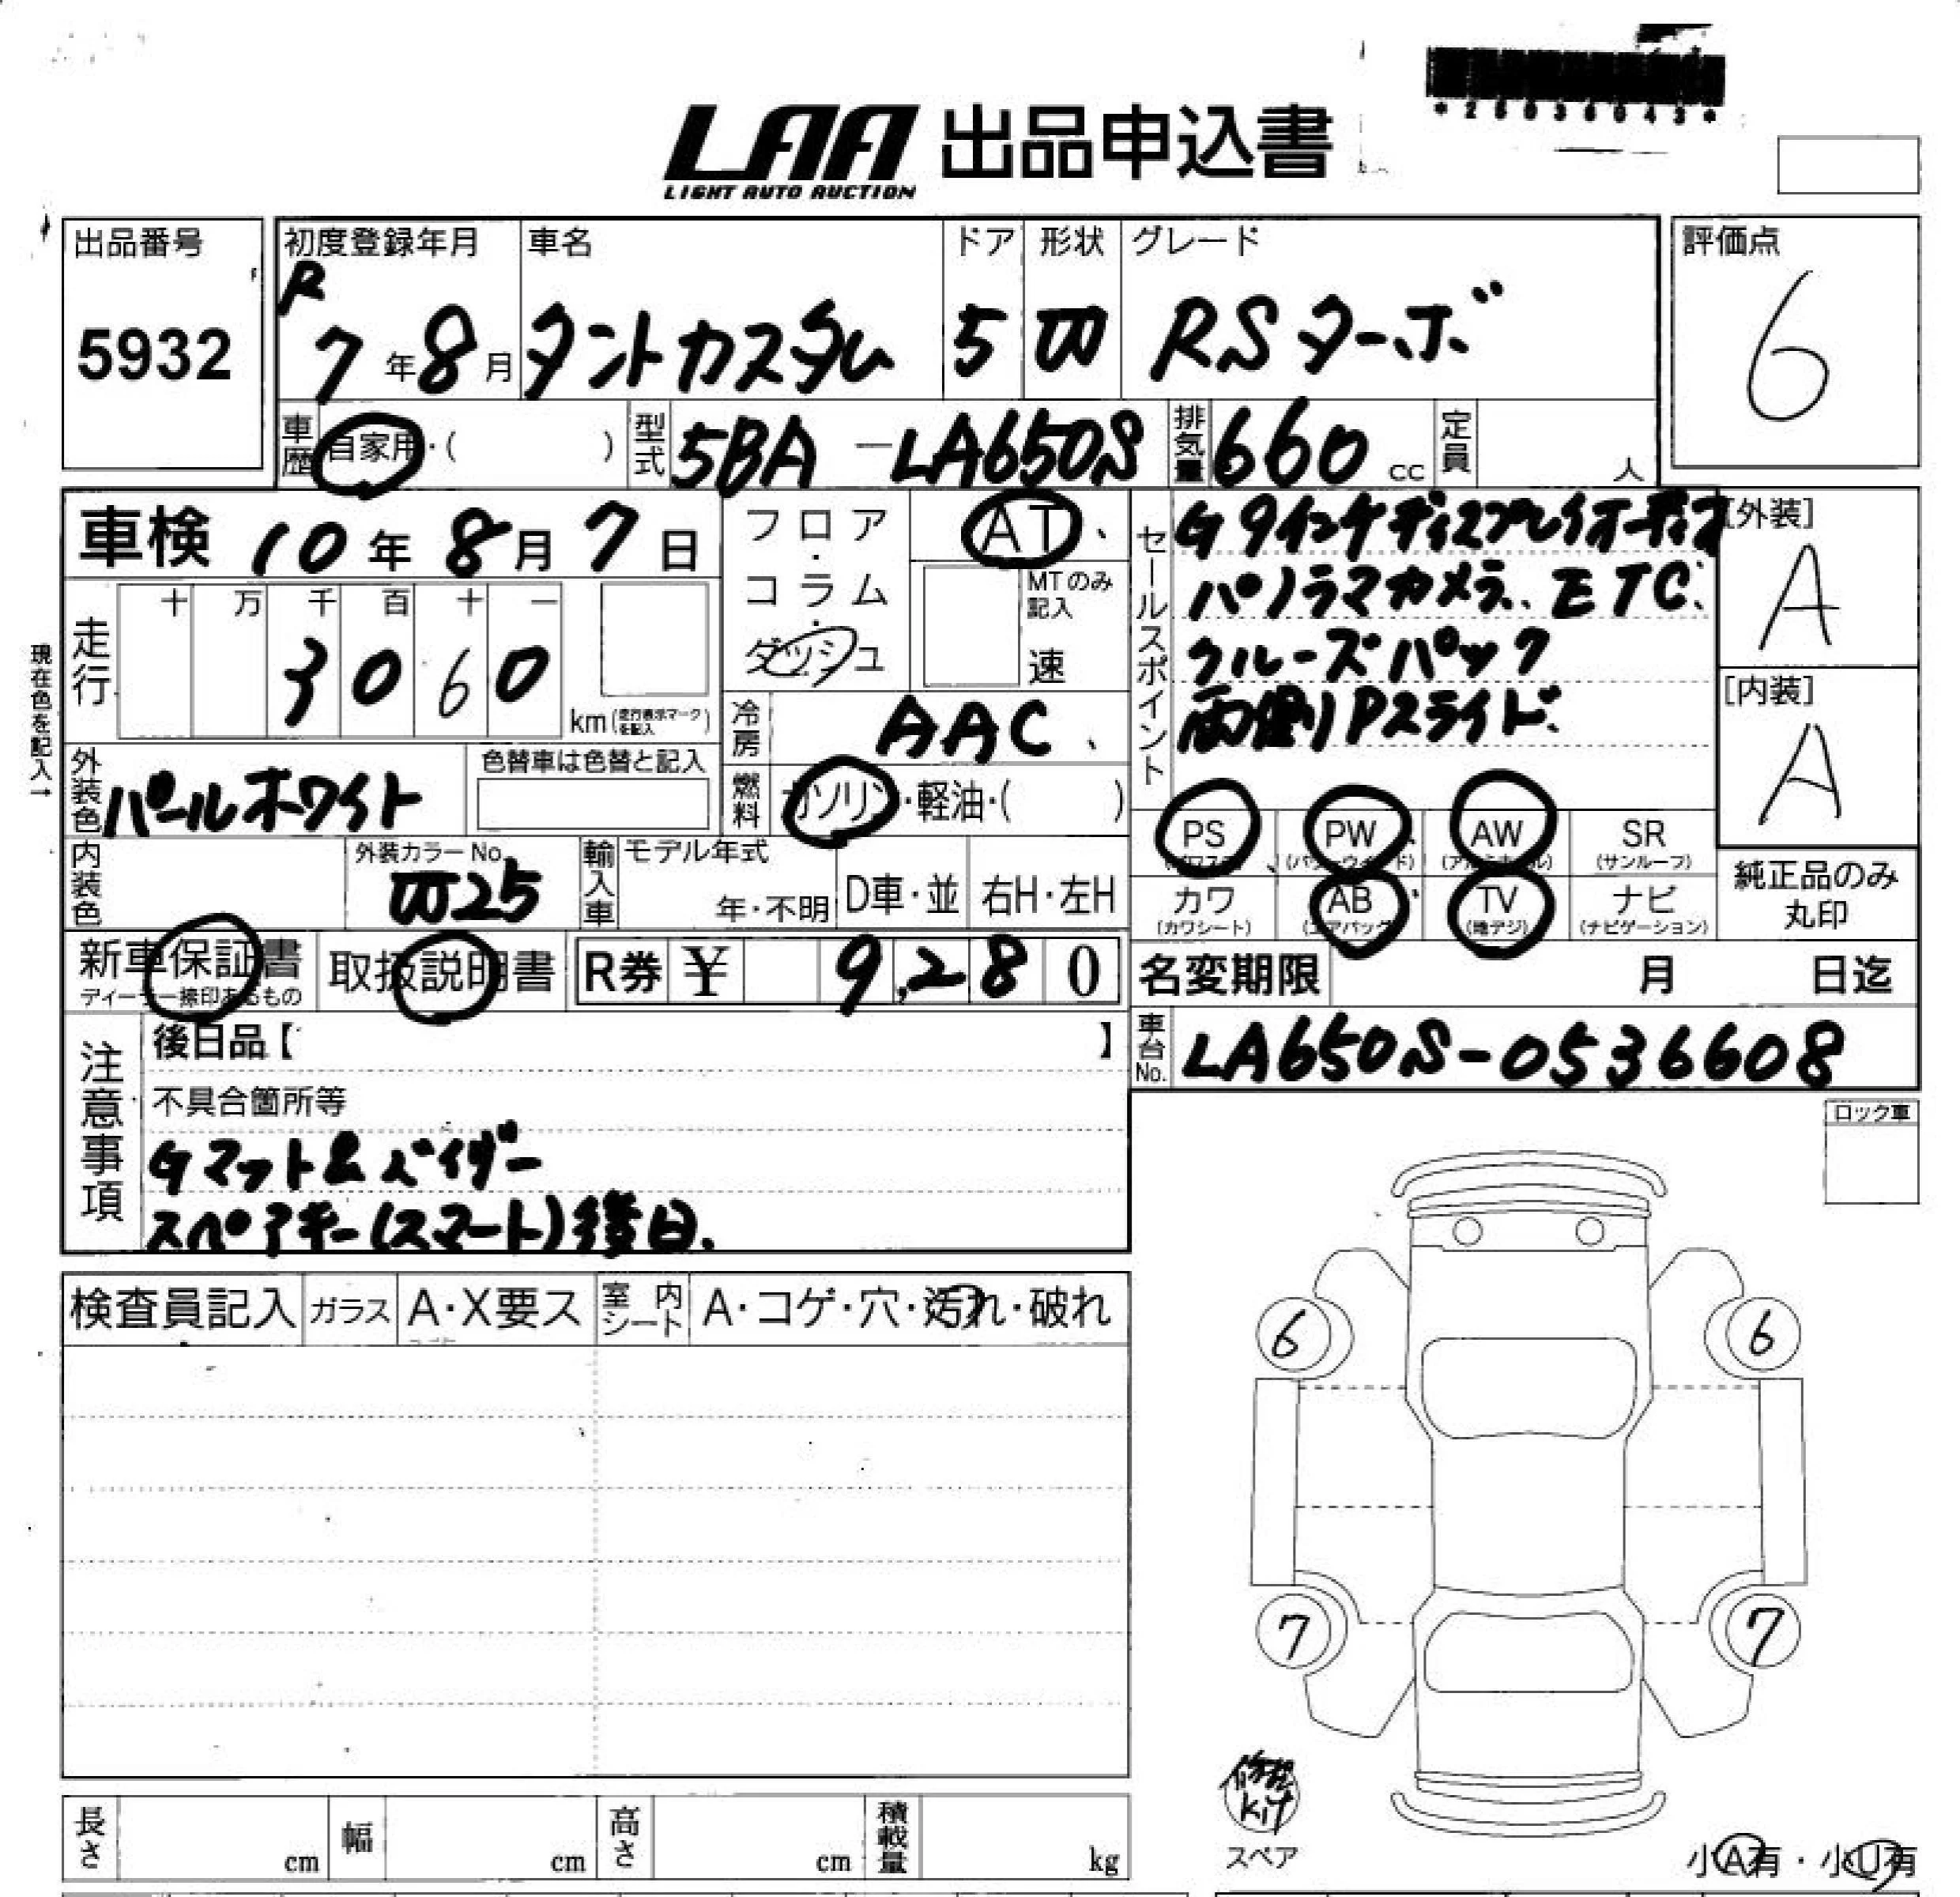 *25036043*
LAA 出品申込書
LIGHT AUTO AUCTION
出品番号
5932
初度登録年月
R
7年8月
車名
タントカスタム
ドア
5
形状
W
グレード
RSターボ
評価点
6
車歴
自家用・( )
型式
5BA-LA650S
排気量
660 cc
定員
人
車検 10年8月7日
フロア・コラム・ダッシュ
AT、
MTのみ記入
速
セールスポイント
G 9インチディスプレイオーディオ
パノラマカメラ、ETC、
クルーズパック
両側Pスライド、
[外装]
A
[内装]
A
現在色を記入→
走行
十 万 千 百 十 一
3 0 6 0
km(走行表示マークを記入)
冷房
AAC、
外装色
パールホワイト
色替車は色替と記入
燃料
ガソリン・軽油・( )
PS PW AW SR
(パワステ) (パワーウィンド) (アルミホイル) (サンルーフ)
カワ AB TV ナビ
(カワシート) (エアバッグ) (地デジ) (ナビゲーション)
純正品のみ
丸印
内装色
外装カラーNo.
W25
輸入車
モデル年式
年・不明
D車・並
右H・左H
新車保証書
ディーラー捺印あるもの
取扱説明書
R券 ¥ 9,280
名変期限 月 日迄
車台No.
LA650S-0536608
注意事項
後日品【 】
不具合箇所等
Gマット&バイザー
スペアキー(スマート)後日.
ロック車
検査員記入
ガラス
A・X要ス
室内シート
A・コゲ・穴・汚れ・破れ
6
6
7
7
修理
kit
スペア
長さ cm
幅 cm
高さ cm
積載量 kg
小A有・小U有